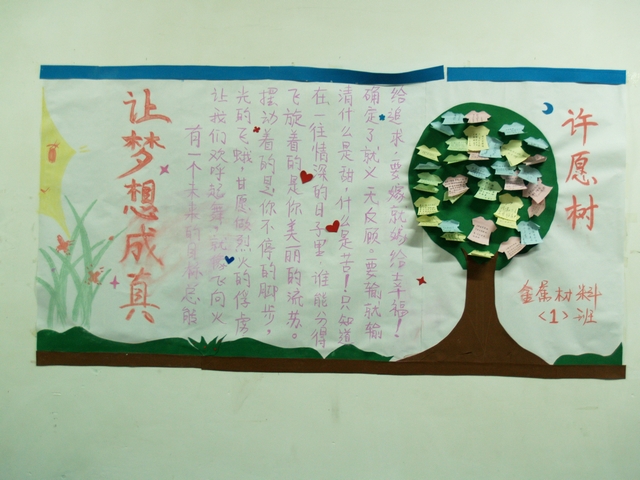 让梦想成真
有一个未来的目标总能
让我们欢呼起舞,就像飞向火
光的飞蛾,甘愿做烈火的俘虏
摆动着的是你不停的脚步,
飞旋着的是你美丽的流苏。
在一往情深的日子里,谁能分得
清什么是甜,什么是苦!只知道
确定了就义无反顾。要输就输
给追求,要嫁就嫁给幸福!
许愿树
金属材料
<1>班